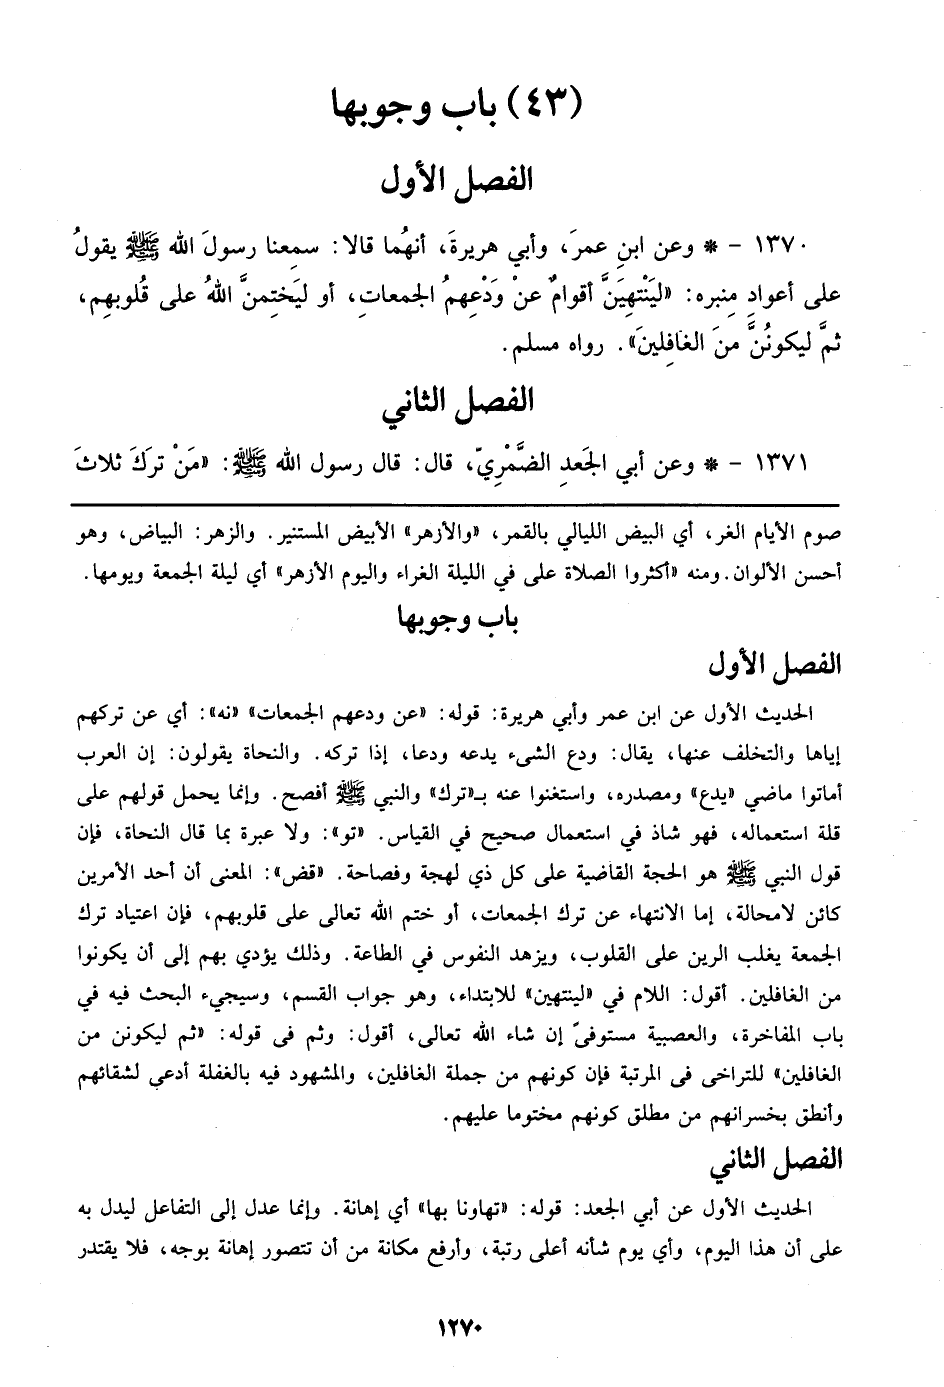 (٤٣) باب وجوبها
الفصل الأول
١٣٧٠ - * وعن ابنِ عمرَ، وأبي هريرةَ، أنهُما قالا: سمعنا رسولَ الله ﷺ يقولُ
على أعوادِ مِنبره: «ليَنْتهِيَنَّ أقوامٌ عنْ وَدْعِهمُ الجمعاتِ، أو ليَختِمنَّ اللهُ على قُلوبهِم،
ثمَّ ليكونُنَّ منَ الغافِلينَ». رواه مسلم.
الفصل الثاني
١٣٧١ - * وعن أبي الجَعدِ الضَّمْريّ، قال: قال رسول الله ﷺ: «مَنْ تركَ ثلاثَ
صوم الأيام الغر، أي البيض الليالي بالقمر، «والأزهر» الأبيض المستنير. والزهر: البياض، وهو
أحسن الألوان. ومنه «أكثروا الصلاة على في الليلة الغراء واليوم الأزهر» أي ليلة الجمعة ويومها.
باب وجوبها
الفصل الأول
الحديث الأول عن ابن عمر وأبي هريرة: قوله: «عن ودعهم الجمعات» «نه»: أي عن تركهم
إياها والتخلف عنها، يقال: ودع الشىء يدعه ودعا، إذا تركه. والنحاة يقولون: إن العرب
أماتوا ماضي «يدع» ومصدره، واستغنوا عنه بـ«ترك» والنبي ﷺ أفصح. وإنما يحمل قولهم على
قلة استعماله، فهو شاذ في استعمال صحيح في القياس. «تو»: ولا عبرة بما قال النحاة، فإن
قول النبي ﷺ هو الحجة القاضية على كل ذي لهجة وفصاحة. «قض»: المعنى أن أحد الأمرين
كائن لامحالة، إما الانتهاء عن ترك الجمعات، أو ختم الله تعالى على قلوبهم، فإن اعتياد ترك
الجمعة يغلب الرين على القلوب، ويزهد النفوس في الطاعة. وذلك يؤدي بهم إلى أن يكونوا
من الغافلين. أقول: اللام في «لينتهين» للابتداء، وهو جواب القسم، وسيجيء البحث فيه في
باب المفاخرة، والعصبية مستوفىً إن شاء الله تعالى، أقول: وثم فى قوله: «ثم ليكونن من
الغافلين» للتراخى فى المرتبة فإن كونهم من جملة الغافلين، والمشهود فيه بالغفلة أدعي لشقائهم
وأنطق بخسرانهم من مطلق كونهم مختوما عليهم.
الفصل الثاني
الحديث الأول عن أبي الجعد: قوله: «تهاونا بها» أي إهانة. وإنما عدل إلى التفاعل ليدل به
على أن هذا اليوم، وأي يوم شأنه أعلى رتبة، وأرفع مكانة من أن تتصور إهانة بوجه، فلا يقتدر
١٢٧٠